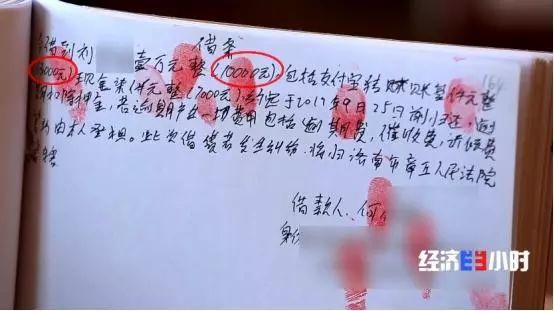 借条
今借到刘 壹万元整(10000元),包括支付宝转账叁仟元整
(3000元)现金柒仟元整(7000元),约定于2017年9月25日前归还,逾
期 押金,若逾期产生一切费用包括逾期费,催收费,诉讼费
均由本人承担。此次借贷若发生纠纷,将归济南市章丘人民法院
借款人:何
身份
经济半小时